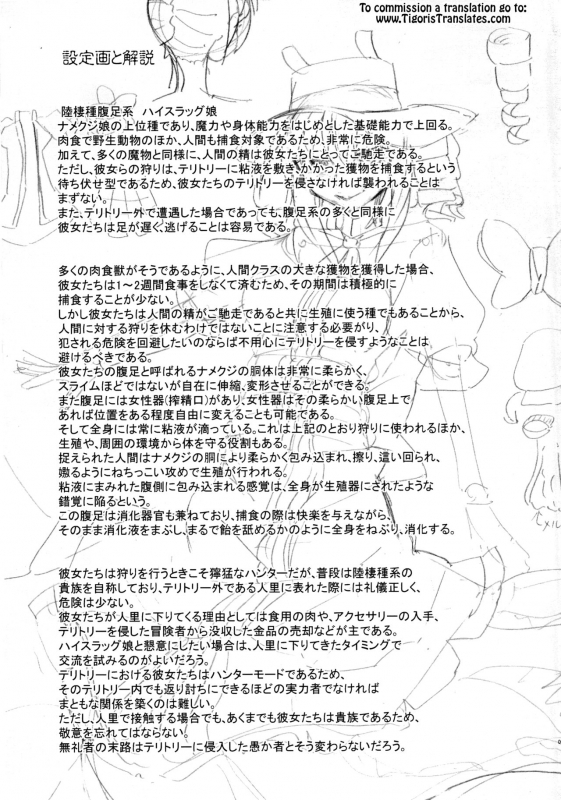 To commission a translation go to:
www.TigorisTranslates.com
設定画と解説
陸棲種腹足系　ハイスラッグ娘
ナメクジ娘の上位種であり、魔力や身体能力をはじめとした基礎能力で上回る。
肉食で野生動物のほか、人間も捕食対象であるため、非常に危険。
加えて、多くの魔物と同様に、人間の精は彼女たちにとってご馳走である。
ただし、彼女らの狩りは、テリトリーに粘液を敷き、かかった獲物を捕食するという
待ち伏せ型であるため、彼女たちのテリトリーを侵さなければ襲われることは
まずない。
また、テリトリー外で遭遇した場合であっても、腹足系の多くと同様に
彼女たちは足が遅く、逃げることは容易である。
多くの肉食獣がそうであるように、人間クラスの大きな獲物を獲得した場合、
彼女たちは1～2週間食事をしなくて済むため、その期間は積極的に
捕食することが少ない。
しかし彼女たちは人間の精がご馳走であると共に生殖に使う種でもあることから、
人間に対する狩りを休むわけではないことに注意する必要がり、
犯される危険を回避したいのならば不用心にテリトリーを侵すようなことは
避けるべきである。
彼女たちの腹足と呼ばれるナメクジの胴体は非常に柔らかく、
スライムほどではないが自在に伸縮、変形させることができる。
また腹足には女性器（搾精口）があり、女性器はその柔らかい腹足上で
あれば位置をある程度自由に変えることも可能である。
そして全身には常に粘液が滴っている。これは上記のとおり狩りに使われるほか、
生殖や、周囲の環境から体を守る役割もある。
捉えられた人間はナメクジの胴により柔らかく包み込まれ、擦り、這い回られ、
嬲るようにねちっこい攻めで生殖が行われる。
粘液にまみれた腹側に包み込まれる感覚は、全身が生殖器にされたような
錯覚に陥るという。
この腹足は消化器官も兼ねており、捕食の際は快楽を与えながら、
そのまま消化液をまぶし、まるで飴を舐めるかのように全身をねぶり、消化する。
彼女たちは狩りを行うときこそ獰猛なハンターだが、普段は陸棲種系の
貴族を自称しており、テリトリー外である人里に表れた際には礼儀正しく、
危険は少ない。
彼女たちが人里に下りてくる理由としては食用の肉や、アクセサリーの入手、
テリトリーを侵した冒険者から没収した金品の売却などが主である。
ハイスラッグ娘と懇意にしたい場合は、人里に下りてきたタイミングで
交流を試みるのがよいだろう。
テリトリーにおける彼女たちはハンターモードであるため、
そのテリトリー内でも返り討ちにできるほどの実力者でなければ
まともな関係を築くのは難しい。
ただし、人里で接触する場合でも、あくまでも彼女たちは貴族であるため、
敬意を忘れてはならない。
無礼者の末路はテリトリーに侵入した愚か者とそう変わらないだろう。